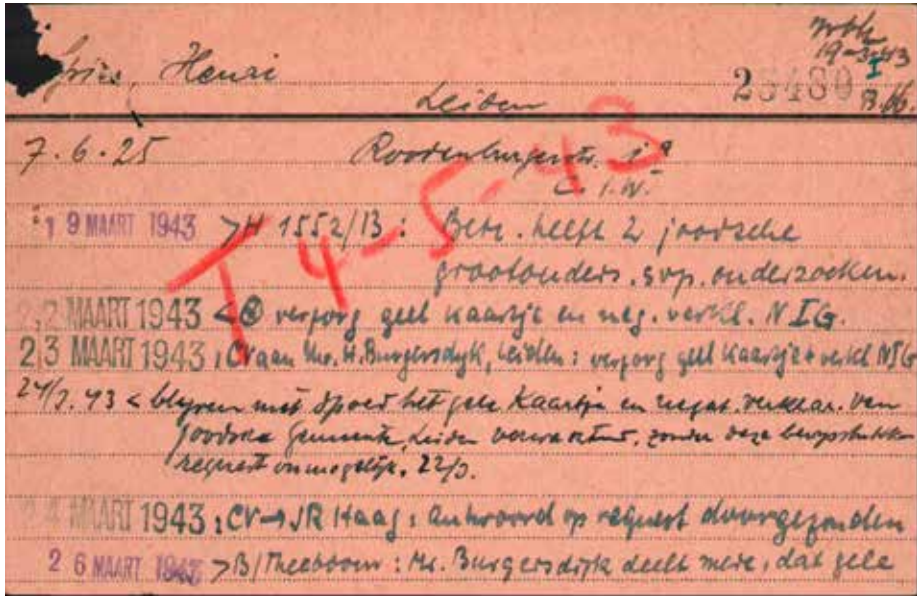 Vries, Henri
19-3-43
I
23480 B.
Leiden
7.6.25 Roodenburgerstr. 1a
C.I.W.
T 4-5-43
19 MAART 1943 >H 1552/13: Betr. heeft 2 joodsche
grootouders. svp. onderzoeken.
22 MAART 1943 < verzorg geel kaartje en neg. verkl. NIG.
23 MAART 1943 : CV aan Mr. H. Burgersdyk, Leiden: verzorg geel kaartje + verkl NIG
24/3.43 < blyven met spoed het gele kaartje en negat. verklar. van
joodsche gemeente Leiden verwachten, zonder deze bewysstukken
request onmogelijk. 22/3.
24 MAART 1943 : CV→JR Haag: antwoord op request doorgezonden
26 MAART 1943 >B/Theeboom: Mr. Burgersdijk deelt mede, dat gele